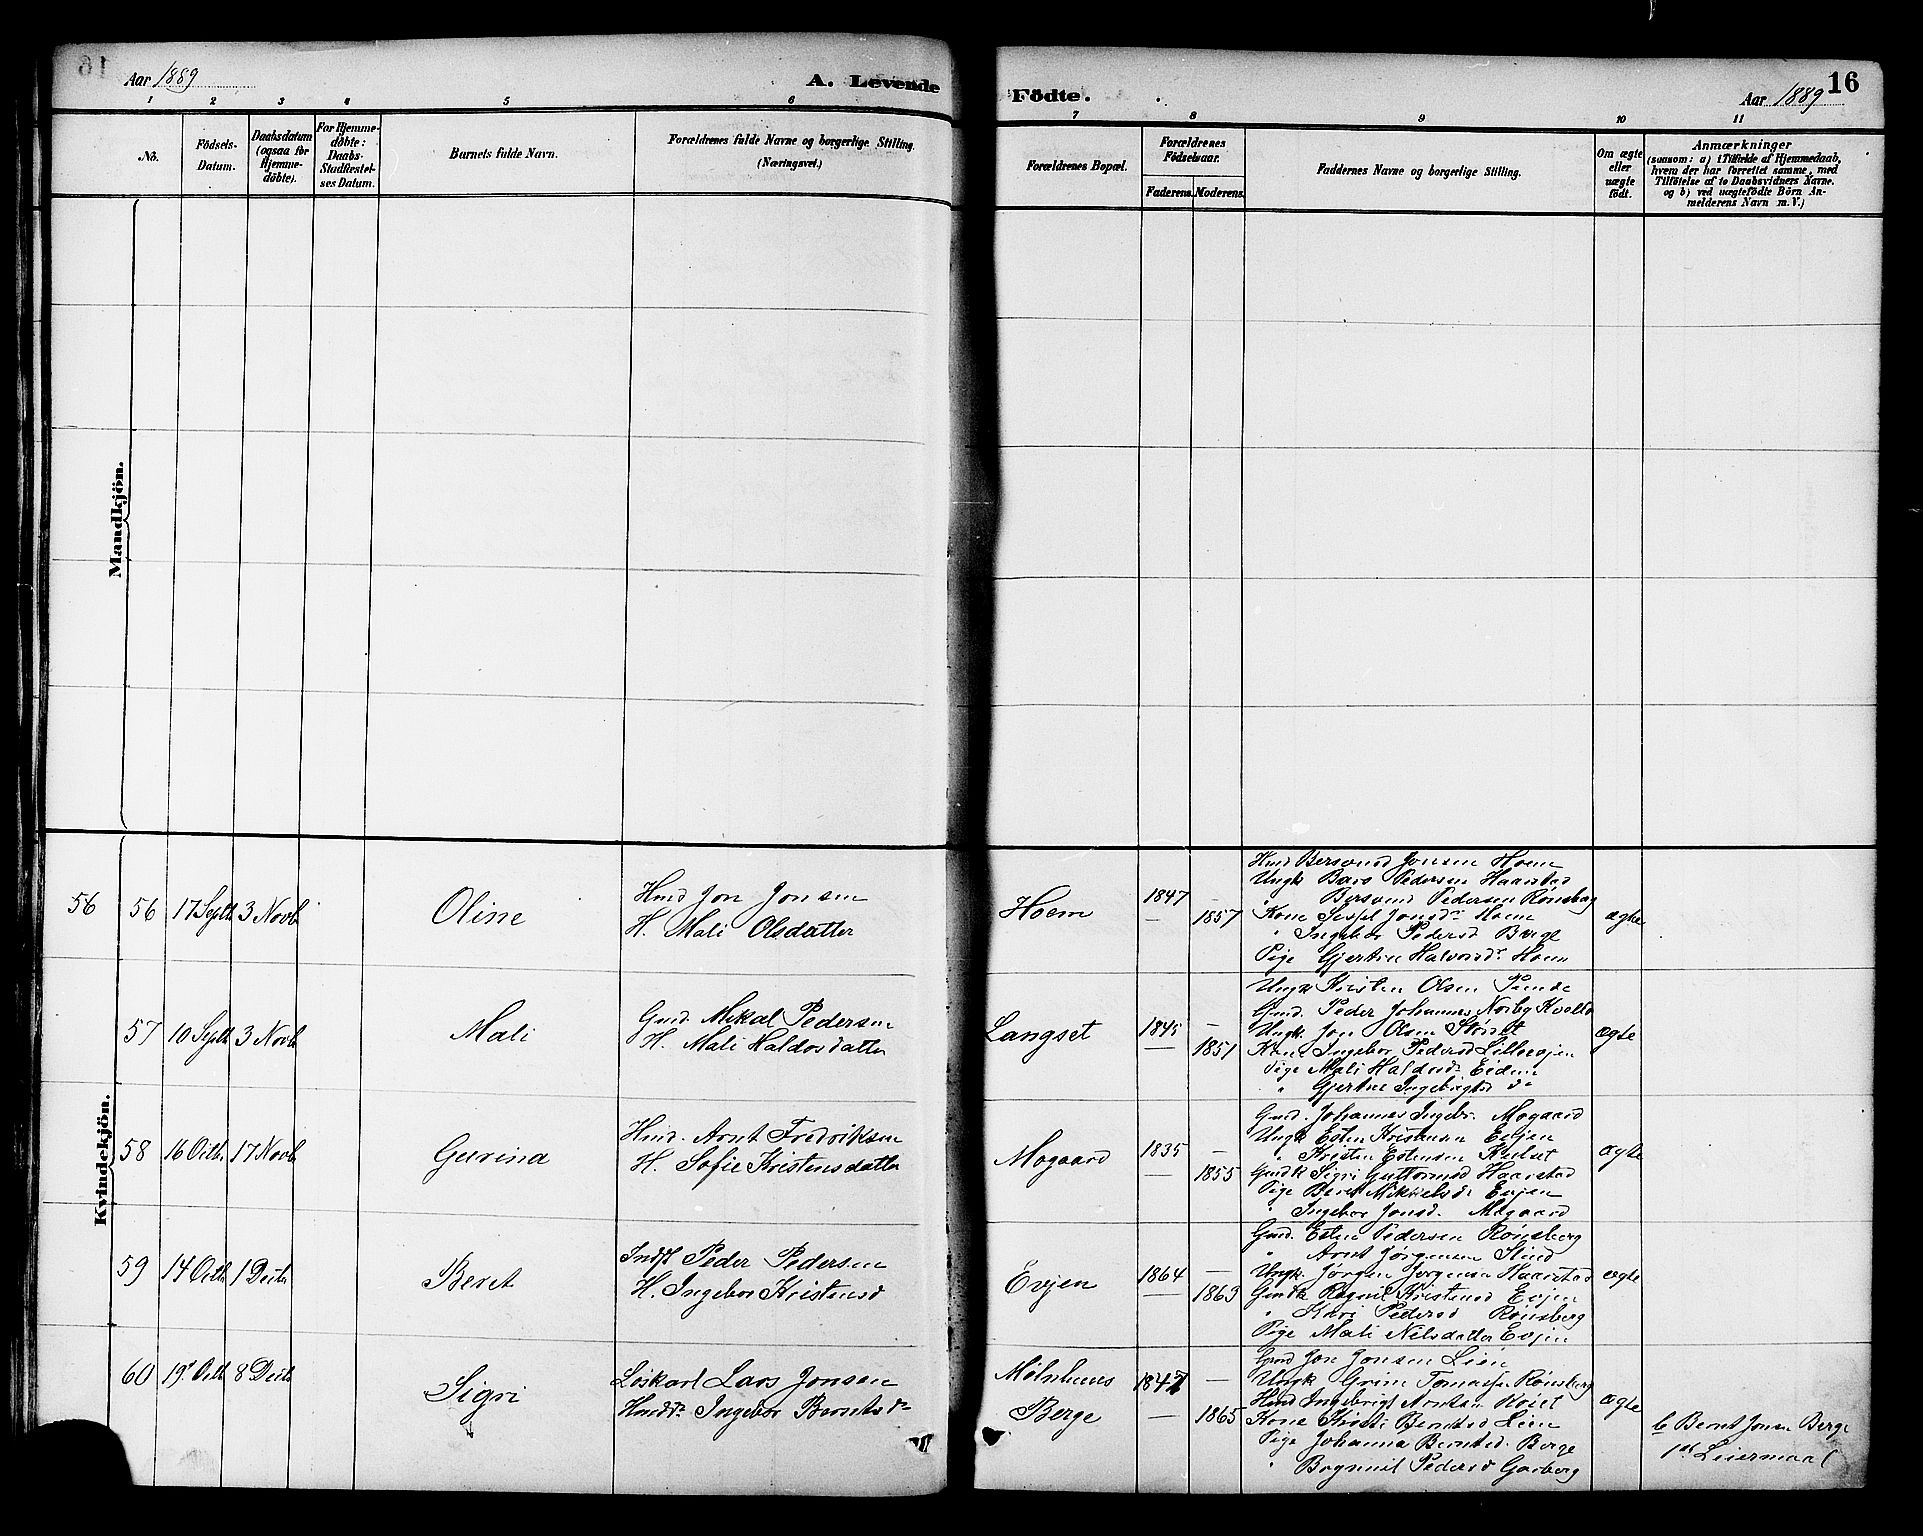 Aar 1889
A. Levende
Födte.
Aar 1889
16
1 2 3 4 5 6 7 8 9 10 11
No.
Födsels-
Datum.
Daabsdatum
(ogsaa for
Hjemme-
döbte).
For Hjemme-
döbte:
Daabs-
Stadfæstel-
ses Datum.
Barnets fulde Navn.
Forældrenes fulde Navne og borgerlige Stilling.
(Næringsvei.)
Forældrenes Bopæl.
Forældrenes
Födselsaar.
Faderens. Moderens.
Faddernes Navne og borgerlige Stilling.
Om ægte
eller
uægte
födt.
Anmærkninger
(saasom: a) i Tilfælde af Hjemmedaab,
hvem der har forrettet samme, med
Tilföielse af to Daabsvidners Navne.
og b) ved uægtefödte Börn An-
melderens Navn m. V.)
Mandkjön.
Kvindekjön.
56 56 17 Septb 3 Novb
Oline
Hmd Jon Jonsen
H. Mali Olsdatter
Hoem
1847 —
— 1857
Hmd Bersvend Jonsen Hoem
Ungk Bars Pedersen Haarstad
" Bersvend Pedersen Rönsberg
Kone Sessel Jonsdr Hoem
" Ingebor Pedersd Berge
Pige Gjertine Halvorsdr Hoem
ægte
57 10 Septb 3 Novb
Mali
Gmd. Mikal Pedersen
H. Mali Haldosdatter
Langset
1845 —
— 1851
Ungk Kristen Olsen
Gmd. Peder Johannes
Ungk Jon Olsen
Kone Ingebor Pedersd Lilleevjen
Pige Mali Haldosdr Eidem
" Gjertine Ingebrigtsd do
ægte
58 16 Octb 17 Novb
Gurina
Hmd. Arnt Fredriksen
H. Sofie Kristensdatter
Mogaard
1835 —
— 1855
Gmd. Johannes Ingebr. Mogaard
Ungk Esten Kristensen Evjen
" Kristen Estensen Kulset
Gmdk Sigri Guttormsd Haarstad
Pige Beret Mikkelsdr Evjen
" Ingebor Jonsd. Mogaard
ægte
59 14 Octb 1 Decb
Beret
Indst Peder Pedersen
H. Ingebor Kristensd
Evjen
1864 —
— 1863
Gmd. Esten Pedersen Rönsberg
" Arnt Jörgensen Stind
Ungk. Jörgen Jörgensen Haarstad
Gmdk Ragnil Kristensd Evjen
" Kari Pedersd Rönsberg
Pige Mali Nilsdatter Evjen
ægte
60 19 Octb 8 Decb
Sigri
Löskarl Lars Jonsen
Hmddr Ingebor Berntsdr
Mölnhuus
Berge
1847 —
— 1865
Gmd Jon Jonsen Lien
Ungk Grim Tomassen Rönsberg
Hmd Ingebrigt Arntsen
Kone Kirsti Berntsd Lien
Pige Johanna Berntsd. Berge
" Bognuil Pedersd Garberg
ægte
b Bernt Jonsen Berge
1st Leiermaal